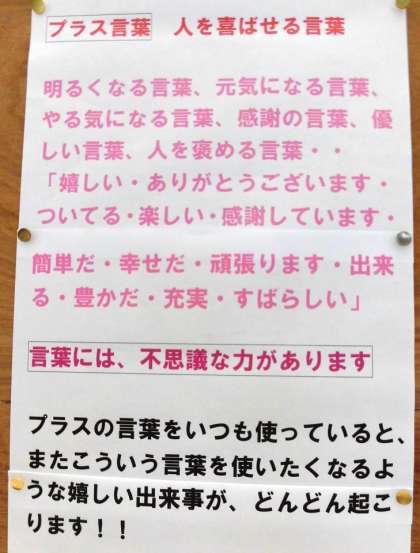 プラス言葉　人を喜ばせる言葉
明るくなる言葉、元気になる言葉、
やる気になる言葉、感謝の言葉、優
しい言葉、人を褒める言葉・・
「嬉しい・ありがとうございます・
ついてる・楽しい・感謝しています・
簡単だ・幸せだ・頑張ります・出来
る・豊かだ・充実・すばらしい」
言葉には、不思議な力があります
プラスの言葉をいつも使っていると、
またこういう言葉を使いたくなるよ
うな嬉しい出来事が、どんどん起こ
ります！！